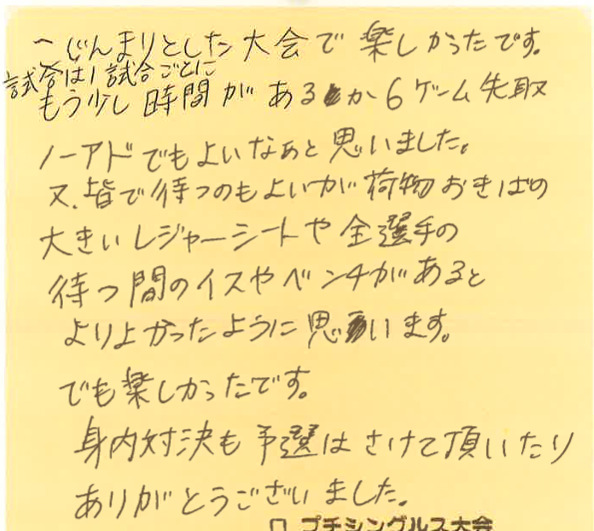 へじんまりとした大会で楽しかったです。
試合は1試合ごとに
もう少し時間があるか6ゲーム先取
ノーアドでもよいなぁと思いました。
又、皆で待つのもよいが荷物おきばの
大きいレジャーシートや全選手の
待つ間のイスやベンチがあると
よりよかったように思います。
でも楽しかったです。
身内対決も予選はさけて頂いたり
ありがとうございました。
□ プチシングルス大会